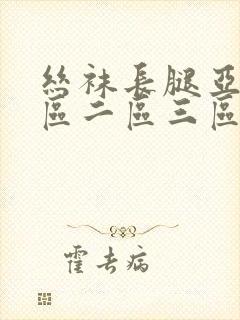 絲袜長腿亞
區二區三區
霍去病